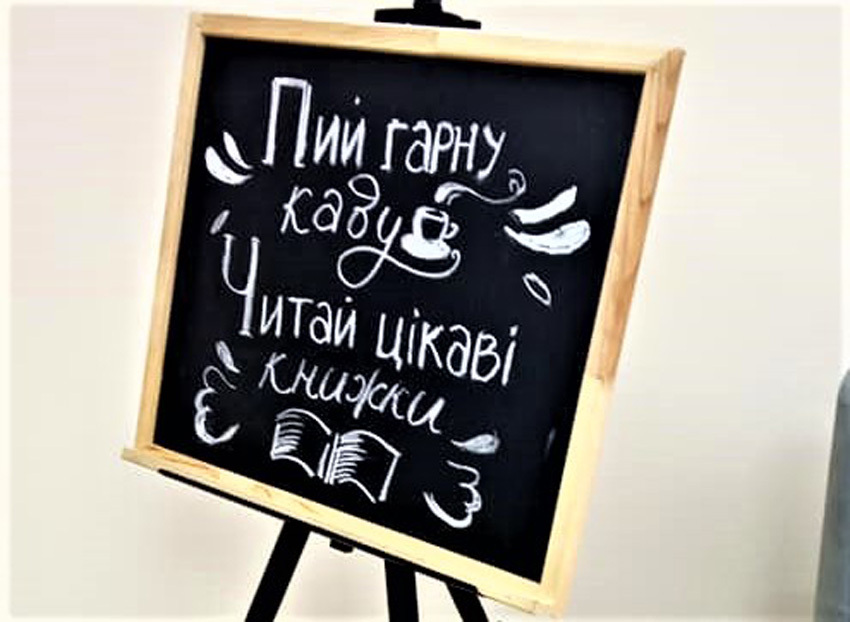 Пий гарну
каву
Читай цікаві
книжки